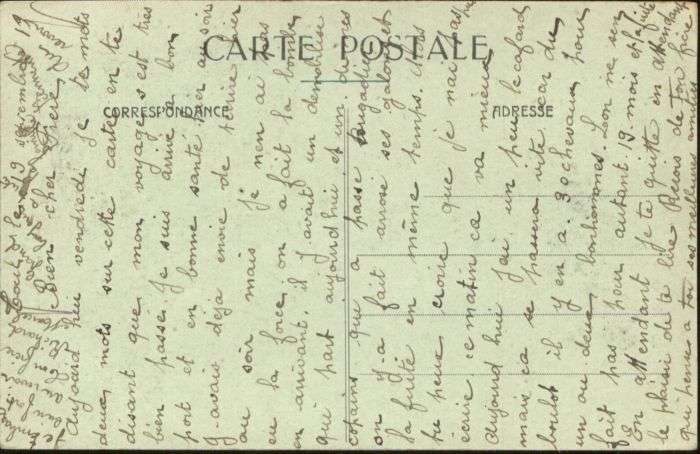 CARTE POSTALE
CORRESPONDANCE
ADRESSE
le 9
Bien cher frère
aujourd hui vendredi je te mets
deux mots sur cette carte en te
disant que mon voyage s est très
bien passé. Je suis arrivé à bon
port et en bonne santé hier au soir
J avais déjà envie de t écrire hier
au soir mais je n en ai pas
eu la force, on a fait la bombe
en arrivant. il y avait un démobilisé
qui part aujourd hui et un de mes
copains qui a passé brigadier
on y a fait arrosé ses galons et
la fuite en même temps. Alors
tu peux croire que je n ai pas pu
écrire ce matin ca va mieux
aujourd hui j ai un peu le cafard
mais ca se passera vite car du
boulot il y en a. 30 chevaux pour
un ou deux bonhommes. Leon ne s en
fait pas pour autant 19 mois et la fuite
En attendant je te quitte en attendant
le plaisir de te lire Recois de ton frère
qui pense a toi ses meilleurs